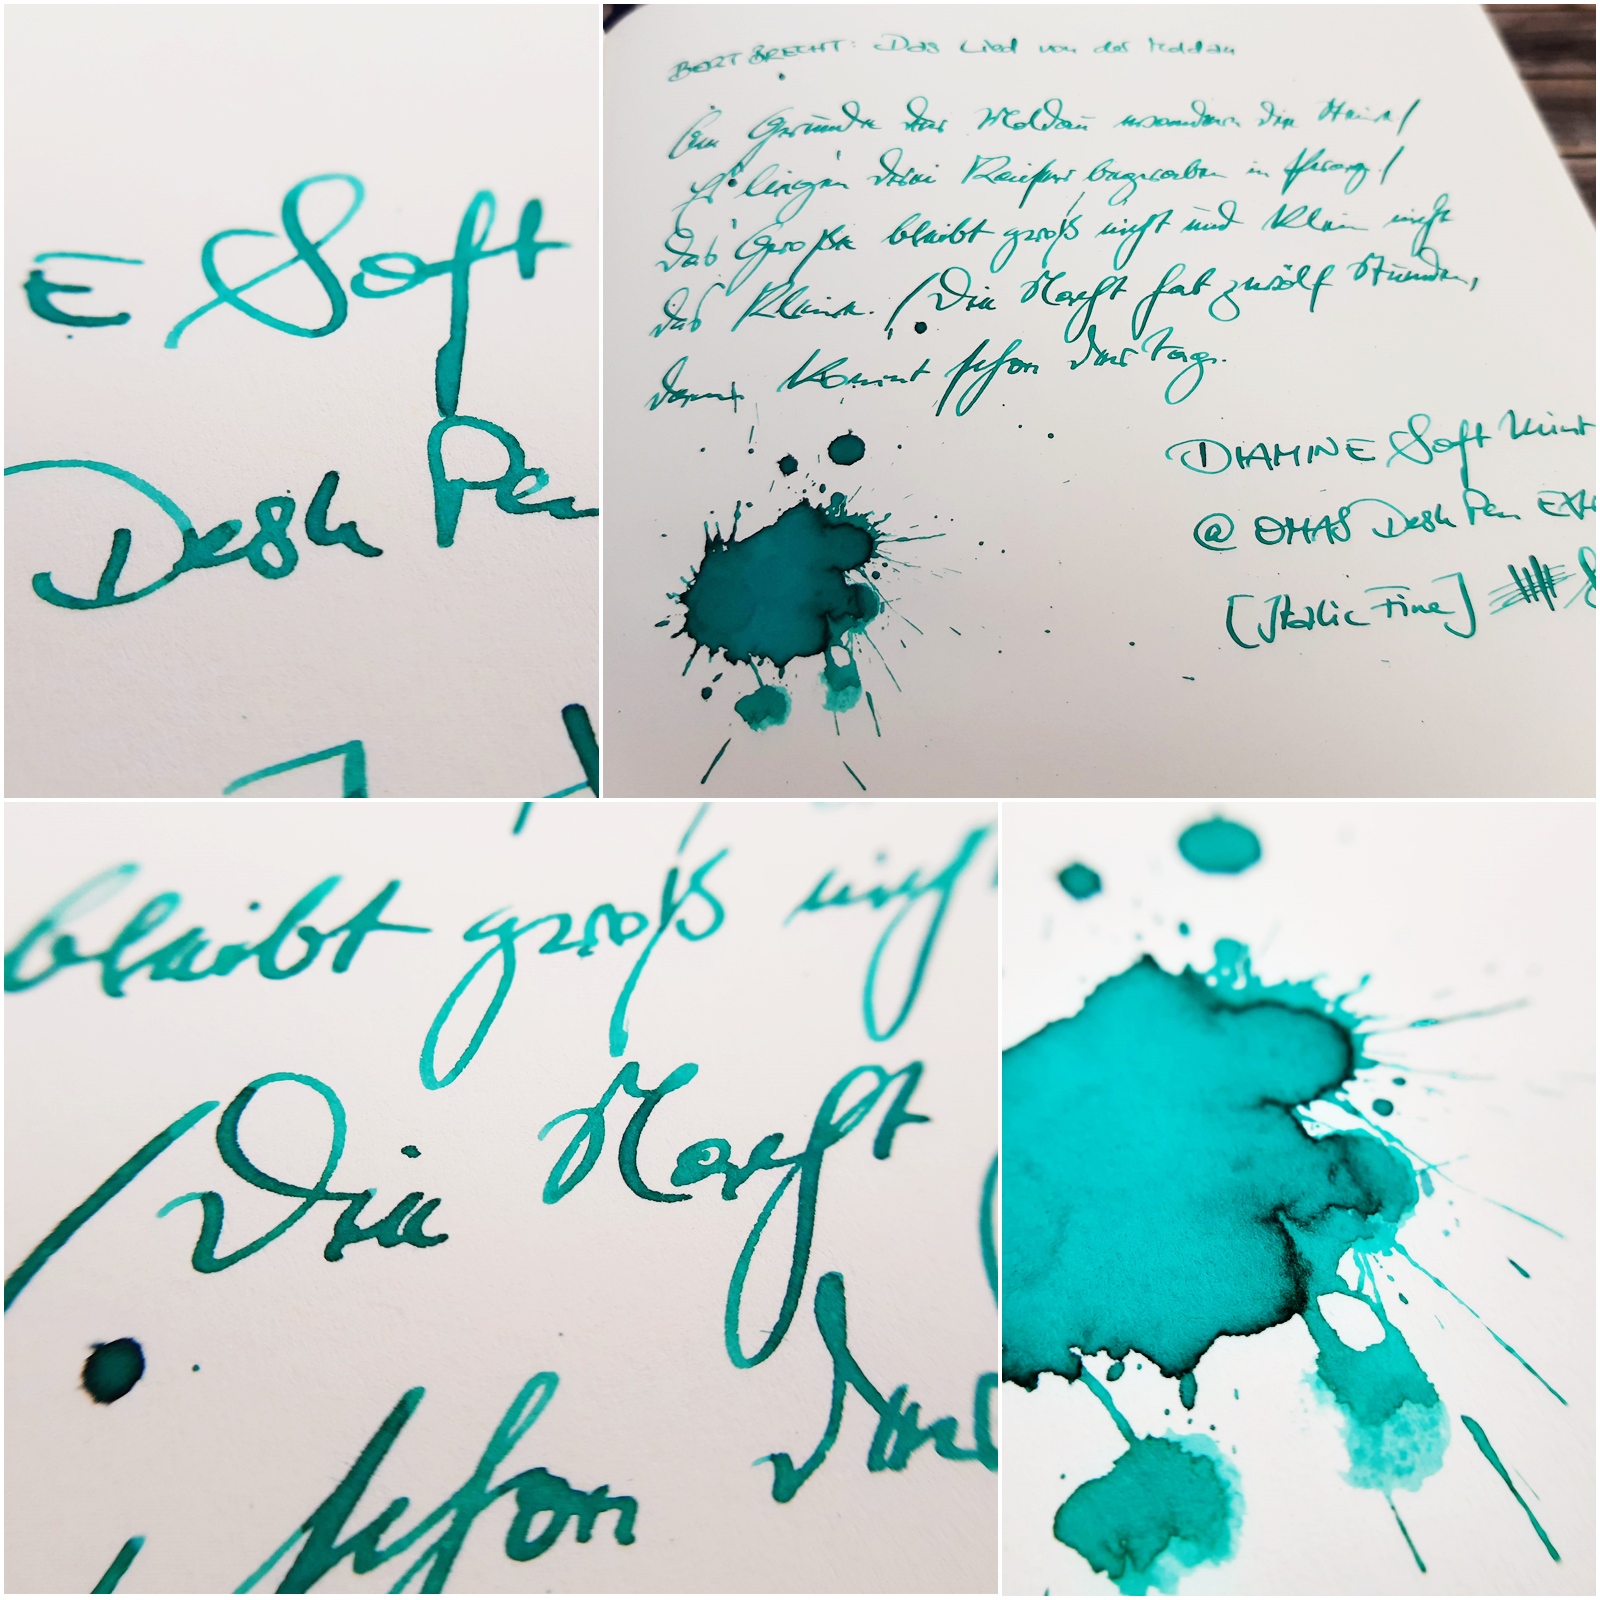 E Soft
Desk Pen
BERT BRECHT: Das Lied von der Moldau
Am Grunde der Moldau wandern die Steine/
Es liegen drei Kaiser begraben in Prag./
Das Große bleibt groß nicht und klein nicht
das Kleine. / Die Nacht hat zwölf Stunden,
dann kommt schon der Tag.
DIAMINE Soft Mint
@ OMAS Desk Pen
[Italic Fine]
bleibt groß nicht
/ Die Nacht
schon der